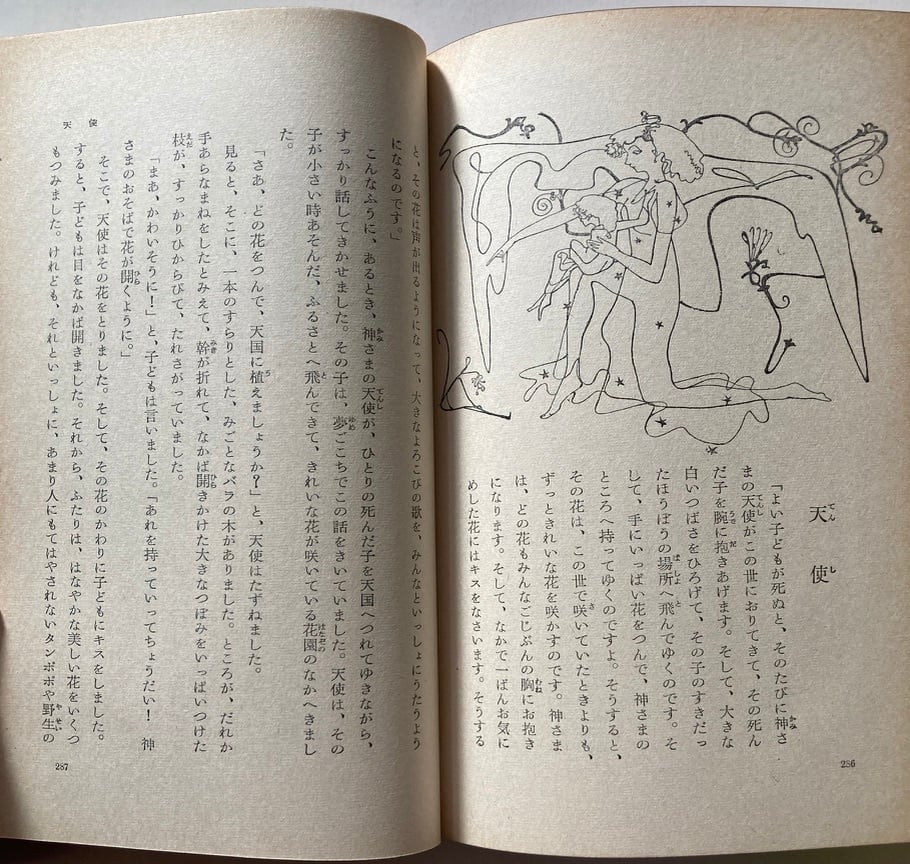 天使
てんし
「よい子どもが死ぬと、そのたびに神さ
まの天使がこの世におりてきて、その死ん
だ子を腕に抱きあげます。そして、大きな
白いつばさをひろげて、その子のすきだっ
たほうぼうの場所へ飛んでゆくのです。そ
して、手にいっぱい花をつんで、神さまの
ところへ持ってゆくのですよ。そうすると、
その花は、この世で咲いていたときよりも、
ずっときれいな花を咲かすのです。神さま
は、どの花もみんなごじぶんの胸にお抱き
になります。そして、なかで一ばんお気に
めした花にはキスをなさいます。そうする
286
と、その花は声が出るようになって、大きなよろこびの歌を、みんなといっしょにうたうよう
になるのです。」
こんなふうに、あるとき、神さまの天使が、ひとりの死んだ子を天国へつれてゆきながら、
すっかり話してきかせました。その子は、夢ごこちでこの話をきいていました。天使は、その
子が小さい時あそんだ、ふるさとへ飛んできて、きれいな花が咲いている花園のなかへきまし
た。
「さあ、どの花をつんで、天国に植えましょうか?」と、天使はたずねました。
見ると、そこに、一本のすらりとした、みごとなバラの木がありました。ところが、だれか
手あらなまねをしたとみえて、幹が折れて、なかば開きかけた大きなつぼみをいっぱいつけた
枝が、すっかりひからびて、たれさがっていました。
「まあ、かわいそうに!」と、子どもは言いました。「あれを持っていってちょうだい! 神
さまのおそばで花が開くように。」
そこで、天使はその花をとりました。そして、その花のかわりに子どもにキスをしました。
すると、子どもは目をなかば開きました。それから、ふたりは、はなやかな美しい花をいくつ
もつみました。けれども、それといっしょに、あまり人にもてはやされないタンポポや野生の
天使
287